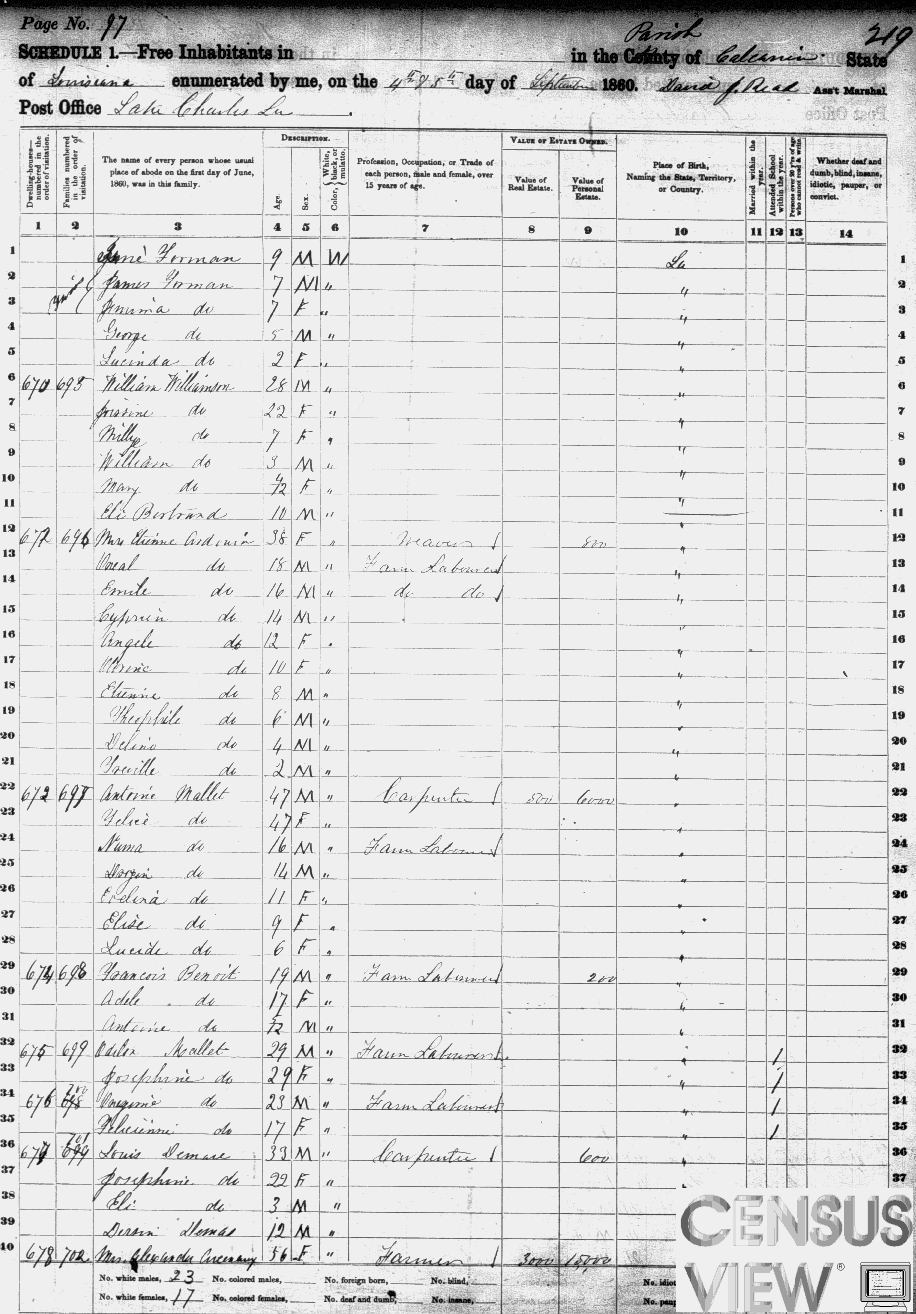 Page No. 97
219
SCHEDULE 1.—Free Inhabitants in in the County of Parish Calcasieu State
of Louisiana enumerated by me, on the 4th & 5th day of September 1860. David J. Read Ass't Marshal
Post Office Lake Charles La
Dwelling-houses—numbered in the order of visitation.
Families numbered in the order of visitation.
The name of every person whose usual place of abode on the first day of June, 1860, was in this family.
DESCRIPTION.
Age.
Sex.
Color, White, black, or mulatto.
Profession, Occupation, or Trade of each person, male and female, over 15 years of age.
VALUE OF ESTATE OWNED.
Value of Real Estate.
Value of Personal Estate.
Place of Birth, Naming the State, Territory, or Country.
Married within the year.
Attended School within the year.
Persons over 20 y'rs of age who cannot read & write.
Whether deaf and dumb, blind, insane, idiotic, pauper, or convict.
1 2 3 4 5 6 7 8 9 10 11 12 13 14
1 Forman 9 M W La 1
2 James Forman 7 M " " 2
3 Jemima do 7 F " " 3
4 George do 5 M " " 4
5 Lucinda do 2 F " " 5
6 670 695 William Williamson 28 M " " 6
7 do 22 F " " 7
8 Milly do 7 F " " 8
9 William do 3 M " " 9
10 Mary do 4/12 F " " 10
11 Eli Bertrand 10 M " 11
12 672 696 Mrs Etienne Ardouin 38 F " Weaver 800 " 12
13 do 18 M " Farm Labourer " 13
14 Emile do 16 M " do do " 14
15 Cyprien do 14 M " " 15
16 Angele do 12 F " " 16
17 do 10 F " " 17
18 Etienne do 8 M " " 18
19 Theophile do 6 M " " 19
20 Delino do 4 M " " 20
21 Treville do 2 M " " 21
22 672 697 Antoine Mallet 47 M " Carpenter 500 6000 " 22
23 Felice do 47 F " " 23
24 Numa do 16 M " Farm Labourer " 24
25 do 14 M " " 25
26 Evelina do 11 F " " 26
27 Elise do 9 F " " 27
28 Lucide do 6 F " " 28
29 674 698 Francois Benoit 19 M " Farm Labourer 200 " 29
30 Adele do 17 F " " 30
31 Antoine do /12 M " " 31
32 675 699 Odilon Mallet 29 M " Farm Labourer " 1 32
33 Josephine do 29 F " " 1 33
34 676 700 698 do 23 M " Farm Labourer " 1 34
35 do 17 F " " 1 35
36 677 701 699 Louis Demare 33 M " Carpenter 600 " 36
37 Josephine do 22 F " " 37
38 Eli do 3 M " 38
39 12 M " 39
40 678 702 Mrs. Alexander 56 F " Farmer 3000 40
No. white males, 23 No. colored males, No. foreign born, No. blind, No. idiotic
No. white females, 17 No. colored females, No. deaf and dumb, No. insane, No. paup
CENSUS
VIEW®